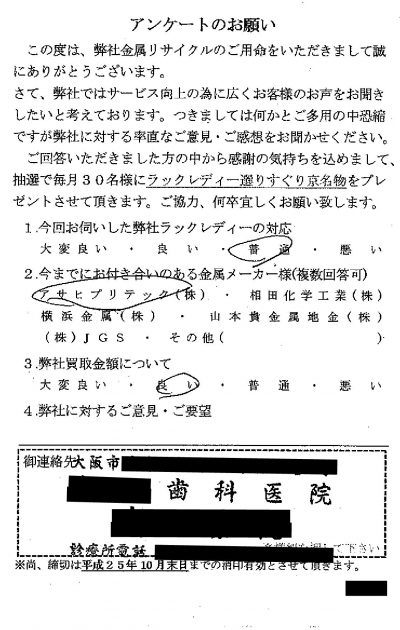 アンケートのお願い
この度は、弊社金属リサイクルのご用命をいただきまして誠
にありがとうございます。
さて、弊社ではサービス向上の為に広くお客様のお声をお聞き
したいと考えております。つきましては何かとご多用の中恐縮
ですが弊社に対する率直なご意見・ご感想をお聞かせください。
ご回答いただきました方の中から感謝の気持ちを込めまして、
抽選で毎月30名様にラックレディー選りすぐり京名物をプレ
ゼントさせて頂きます。ご協力、何卒宜しくお願い致します。
1.今回お伺いした弊社ラックレディーの対応
大変良い ・ 良い ・ 普通 ・ 悪い
2.今までにお付き合いのある金属メーカー様(複数回答可)
アサヒプリテック(株) ・ 相田化学工業(株)
横浜金属(株) ・ 山本貴金属地金(株)
(株)JGS ・ その他( )
3.弊社買取金額について
大変良い ・ 良い ・ 普通 ・ 悪い
4.弊社に対するご意見・ご要望
御連絡先 大阪市
歯科医院
診療所電話 て下さい
※尚、締切は平成25年10月末日までの消印有効とさせて頂きます。